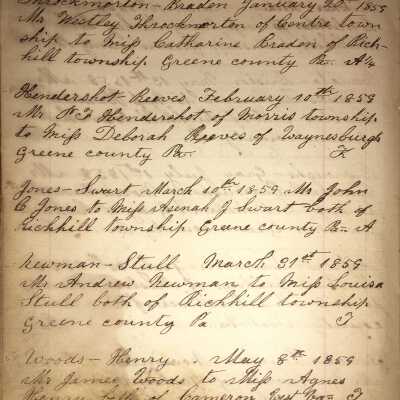 Throckmorton - Braden January 20th 1859
Mr Westley Throckmorton of Centre town
ship to Miss Catharine Braden of Rich-
hill township Greene county Pa. A
Hendershot Reeves February 10th 1859
Mr P T Hendershot of Morris township
to Miss Deborah Reeves of Waynesburgh
Greene county Pa. T
Jones - Swart March 10th 1859 Mr John
C Jones to Miss Asenah J Swart both of
Richhill township Greene county Pa. A
Newman - Stull March 31st 1859
Mr Andrew Newman to Miss Louisa
Stull both of Richhill township
Greene county Pa T
Woods - Henry May 8th 1859
Mr James Woods to Miss Agnes
Henry both of Cameron West Va T